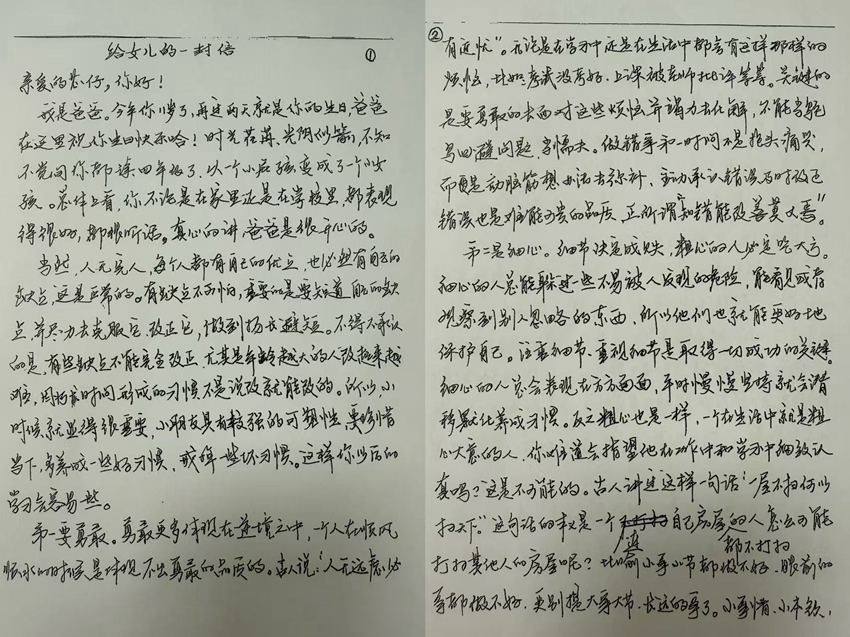 给女儿的一封信
①
亲爱的芯仔，你好！
我是爸爸。今年你11岁了，再过两天就是你的生日，爸爸
在这里祝你生日快乐哈！时光荏苒、光阴似箭，不知
不觉间你都读四年级了，从一个小屁孩变成了一个小女
孩。总体上看，你不论是在家里还是在学校里，都表现
得很好，都很听话。真心的讲，爸爸是很开心的。
当然，人无完人，每个人都有自己的优点，也必然有自己的
缺点，这是正常的。有缺点不可怕，重要的是要知道自己的缺
点并尽力去克服它、改正它，做到扬长避短。不得不承认
的是，有些缺点不能完全改正，尤其是年龄越大的人改越来越
难，因为长时间形成的习惯不是说改就能改的。所以，小
时候就显得很重要，小朋友具有较强的可塑性，要珍惜
当下，多养成一些好习惯，戒掉一些坏习惯。这样你以后的
学习会容易些。
第一要勇敢。勇敢更多体现在逆境之中，一个人在顺风
顺水的时候是体现不出勇敢的品质的。古人说：“人无远虑必
②
有近忧”。无论是在学习中还是在生活中都会有这样那样的
烦恼，比如考试没考好、上课被老师批评等等。关键的
是要勇敢的去面对这些烦恼并努力去化解，不能当鸵
鸟回避问题、当懦夫。做错事和一时间不是抱头痛哭，
而是动脑筋想办法去弥补，主动承认错误及时改正
错误也是难能可贵的品质，正所谓“知错能改善莫大焉”。
第二是细心。细节决定成败，粗心的人必定吃大亏。
细心的人总能躲过一些不易被人发现的危险，能看见或者
观察到别人忽略的东西，所以他们也就能更好地
保护自己。注重细节、重视细节是取得一切成功的关键。
细心的人总会表现在方方面面，平时慢慢坚持就会潜
移默化养成习惯。反之粗心也是一样，一个在生活中就是粗
心大意的人，你难道会指望他在工作中和学习中细致认
真吗？这是不可能的。古人讲过这样一句话：“一屋不扫何以
扫天下。”这句话的本义是一个连自己房屋都不打扫的人怎么可能
打扫其他人的房屋呢？比喻小事小节都做不好、眼前的
事都做不好，更别提大事大节、长远的事了。小事情、小木钦，